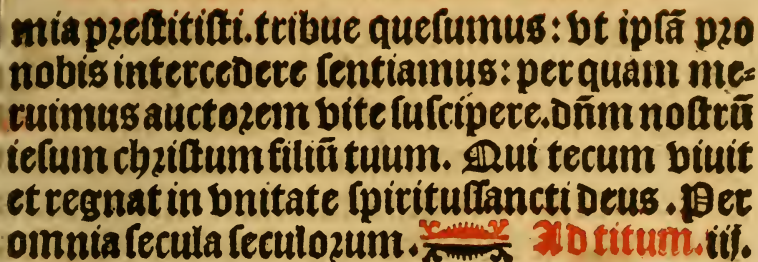 mia preſtitiſti. tribue queſumus: vt ipſã pro
nobis intercedere ſentiamus: per quam me⸗
ruimus auctorem vite ſuſcipere. dñm noſtrũ
ieſum chriſtum filiũ tuum. Qui tecum viuit
et regnat in vnitate ſpirituſſancti deus. Per
omnia ſecula ſeculorum. Ad titum. iij.